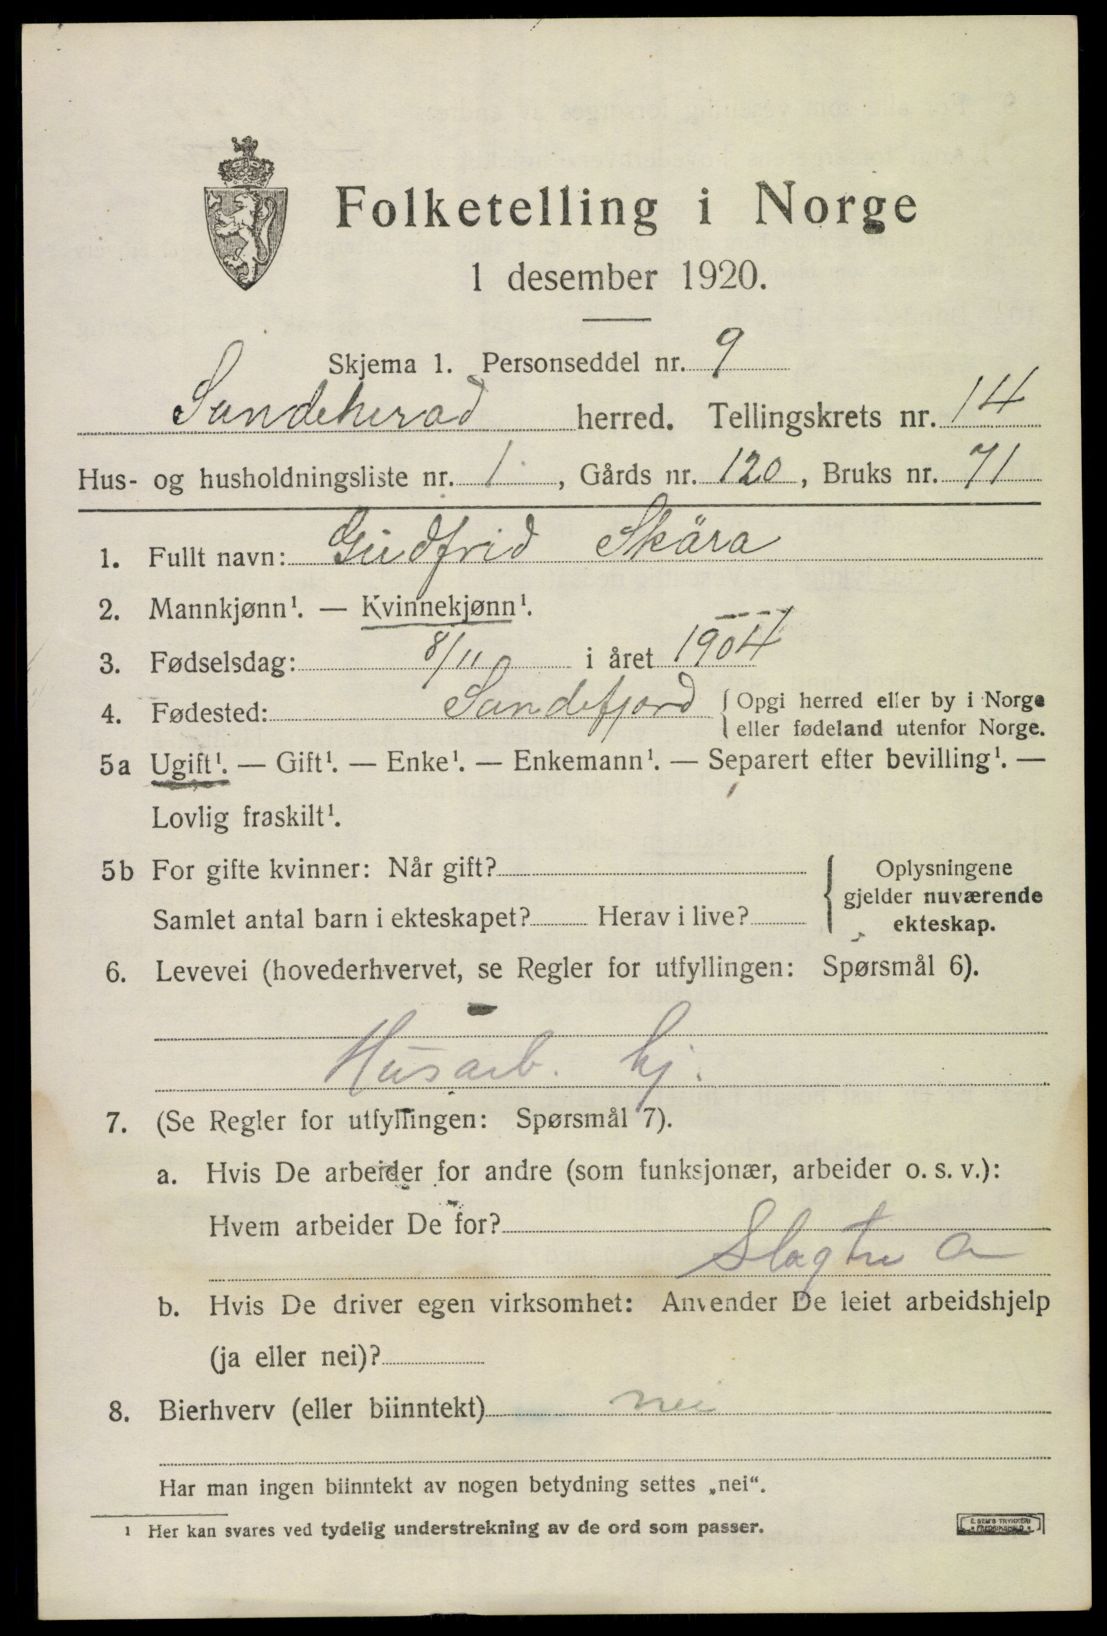 Folketelling i Norge
1 desember 1920.
Skjema 1. Personseddel nr. 9
Sandeherad herred. Tellingskrets nr. 14
Hus- og husholdningsliste nr. 1, Gårds nr. 120, Bruks nr. 71
1. Fullt navn: Gudfrid Skära
2. Mannkjønn¹. — Kvinnekjønn¹.
3. Fødselsdag: 8/11 i året 1904
4. Fødested: Sandefjord { Opgi herred eller by i Norge
eller fødeland utenfor Norge.
5a Ugift¹. — Gift¹. — Enke¹. — Enkemann¹. — Separert efter bevilling¹. —
Lovlig fraskilt¹.
5b For gifte kvinner: Når gift?
Samlet antal barn i ekteskapet? Herav i live?
{ Oplysningene
gjelder nuværende
ekteskap.
6. Levevei (hovederhvervet, se Regler for utfyllingen: Spørsmål 6).
Husarb. hj.
7. (Se Regler for utfyllingen: Spørsmål 7).
a. Hvis De arbeider for andre (som funksjonær, arbeider o. s. v.):
Hvem arbeider De for?
Slagtn a
b. Hvis De driver egen virksomhet: Anvender De leiet arbeidshjelp
(ja eller nei)?
8. Bierhverv (eller biinntekt) nei
Har man ingen biinntekt av nogen betydning settes „nei".
¹ Her kan svares ved tydelig understrekning av de ord som passer.
E. SEM'S TRYKKERI
FREDRIKSHALD